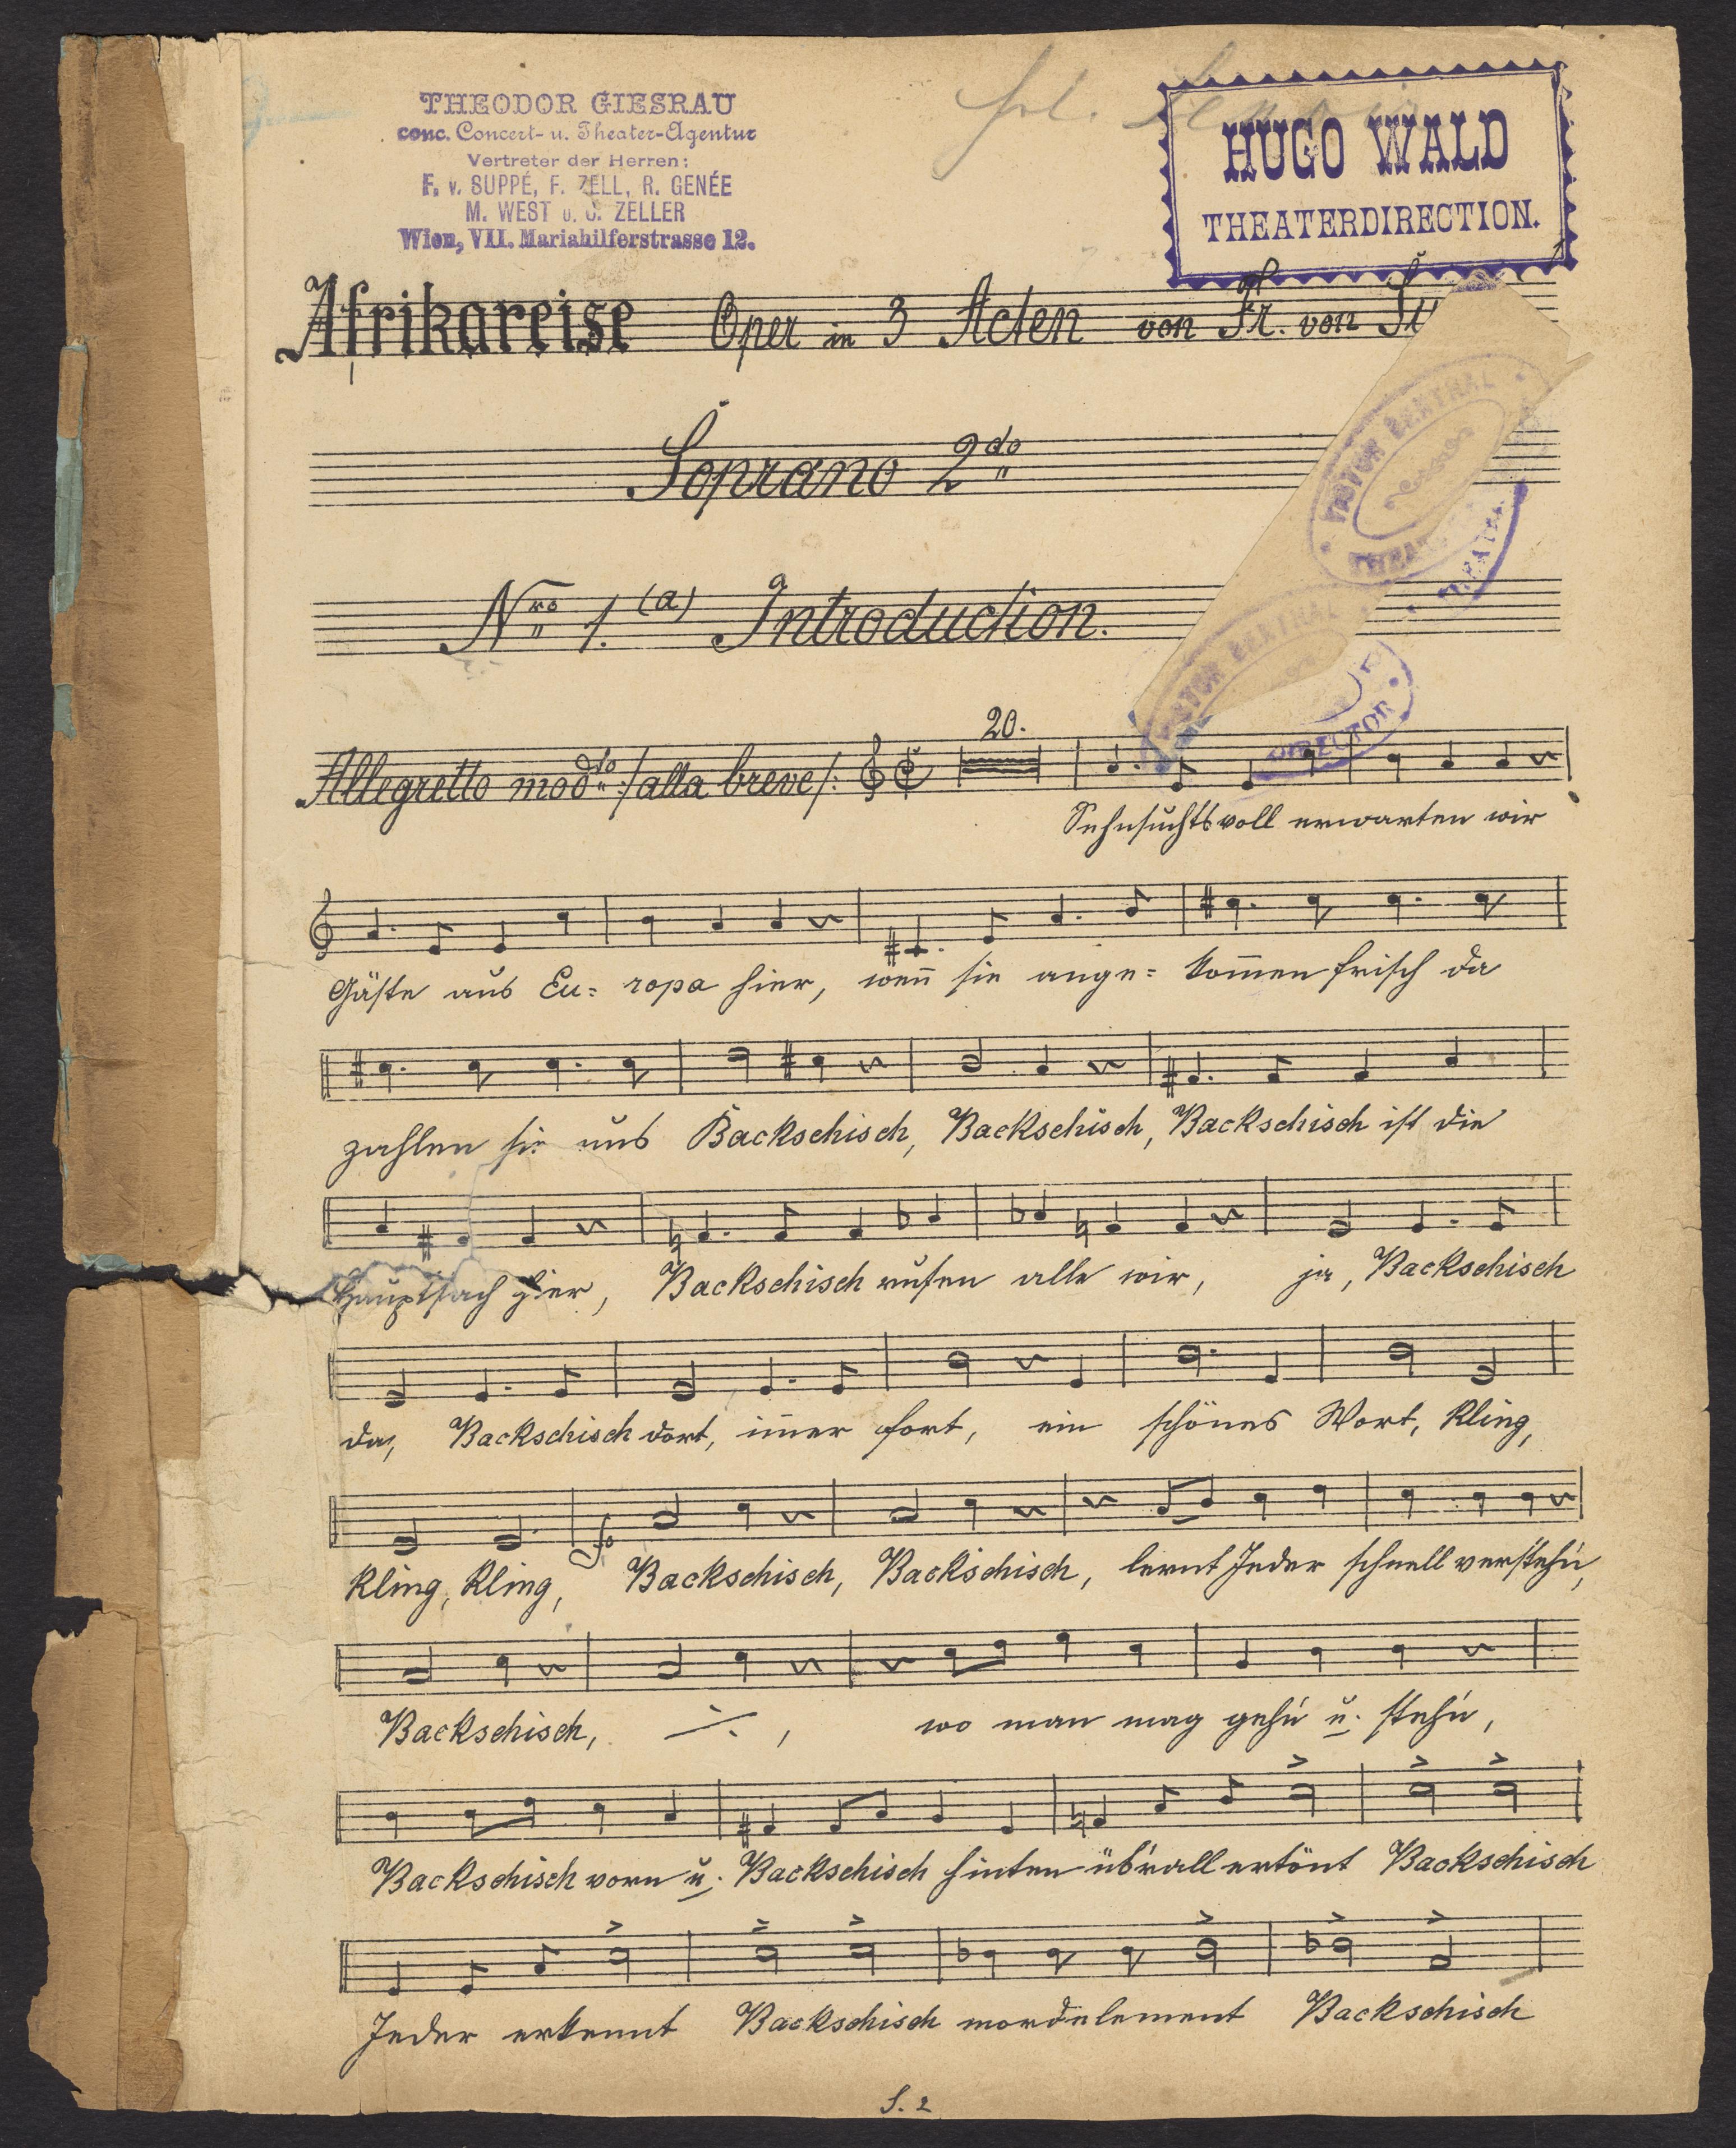 THEODOR GIESRAU
conc. Concert- u. Theater-Agentur
Vertreter der Herren:
F. v. SUPPÉ, F. ZELL, R. GENÉE
M. WEST u. C. ZELLER
Wien, VII. Mariahilferstrasse 12.
HUGO WALD
THEATERDIRECTION.
Afrikareise Oper in 3 Acten von Fr. von
Soprano 2do
VICTOR BERTHAL
Nro 1. (a) Introduction.
DIRECTOR
20.
Allegretto modto :/alla breve/:
Sehnsuchtsvoll erwarten wir
Gäste aus Eu= ropa hier, weñ sie ange= kom̃en frisch da
zahlen sie uns Backschisch, Backschisch, Backschisch ist die
Hauptsach hier, Backschisch rufen alle wir, ja, Backschisch
da, Backschisch dort, im̃er fort, ein schönes Wort, Kling,
fo
Kling, Kling, Backschisch, Backschisch, lernt Jeder schnell versteh'n,
Backschisch, ·/· , wo man mag geh'n u. steh'n,
Backschisch vorn u. Backschisch hinten üb'rall ertönt Backschisch
Jeder erkennt Backschisch mordelement Backschisch
S. 2